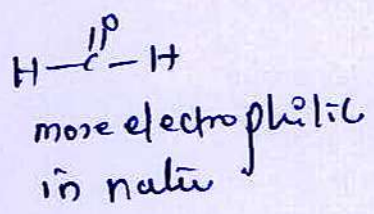 O
H-C-H
more electrophilic
in natu